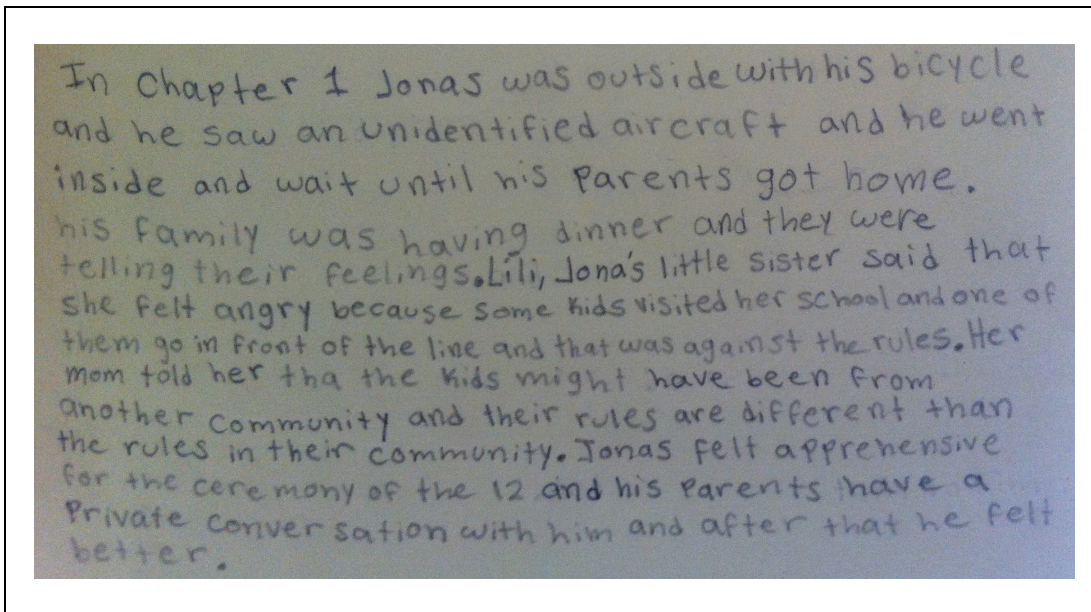 In Chapter 1 Jonas was outside with his bicycle
and he saw an unidentified aircraft and he went
inside and wait until his parents got home.
his family was having dinner and they were
telling their feelings. Lili, Jona's little sister said that
she felt angry because some kids visited her school and one of
them go in front of the line and that was against the rules. Her
mom told her tha the kids might have been from
another community and their rules are different than
the rules in their community. Jonas felt apprehensive
for the ceremony of the 12 and his parents have a
Private conversation with him and after that he felt
better.